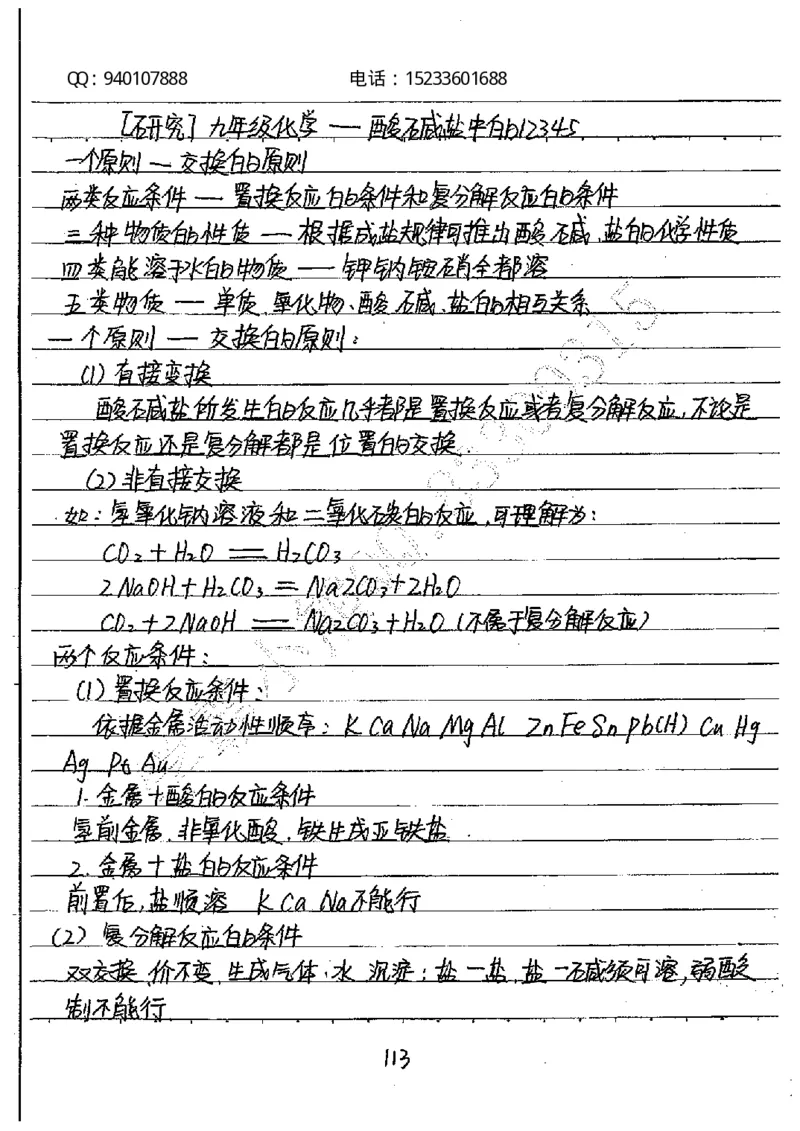 QQ：940107888 电话：15233601688
[研究] 九年级化学 — 酸碱盐中的12345
一个原则 — 交换的原则
两类反应条件 — 置换反应的条件和复分解反应的条件
三种物质的性质 — 根据成盐规律可推出酸、碱、盐的化学性质
四类能溶于水的物质 — 钾钠铵硝全都溶
五类物质 — 单质、氧化物、酸、碱、盐的相互关系
一个原则 — 交换的原则：
(1) 直接变换
酸碱盐所发生的反应几乎都是置换反应或者复分解反应，不论是
置换反应还是复分解都是位置的交换.
(2) 非直接交换
如：氢氧化钠溶液和二氧化碳的反应，可理解为：
CO₂+H₂O == H₂CO₃
2NaOH+H₂CO₃ = Na2CO₃+2H₂O
CO₂+2NaOH == Na2CO₃+H₂O (不属于复分解反应)
两个反应条件：
(1) 置换反应条件：
依据金属活动性顺序：K Ca Na Mg Al Zn Fe Sn Pb (H) Cu Hg
Ag Pt Au
1. 金属+酸的反应条件
氢前金属、非氧化酸，铁生成亚铁盐.
2. 金属+盐的反应条件
前置后，盐须溶 K Ca Na不能行
(2) 复分解反应的条件
双交换、价不变、生成气体、水、沉淀；盐一盐、盐一碱须可溶，弱酸
制不能行
113